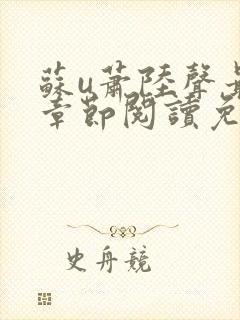 蘇u蕭陸聲
章節閱讀免
史舟競